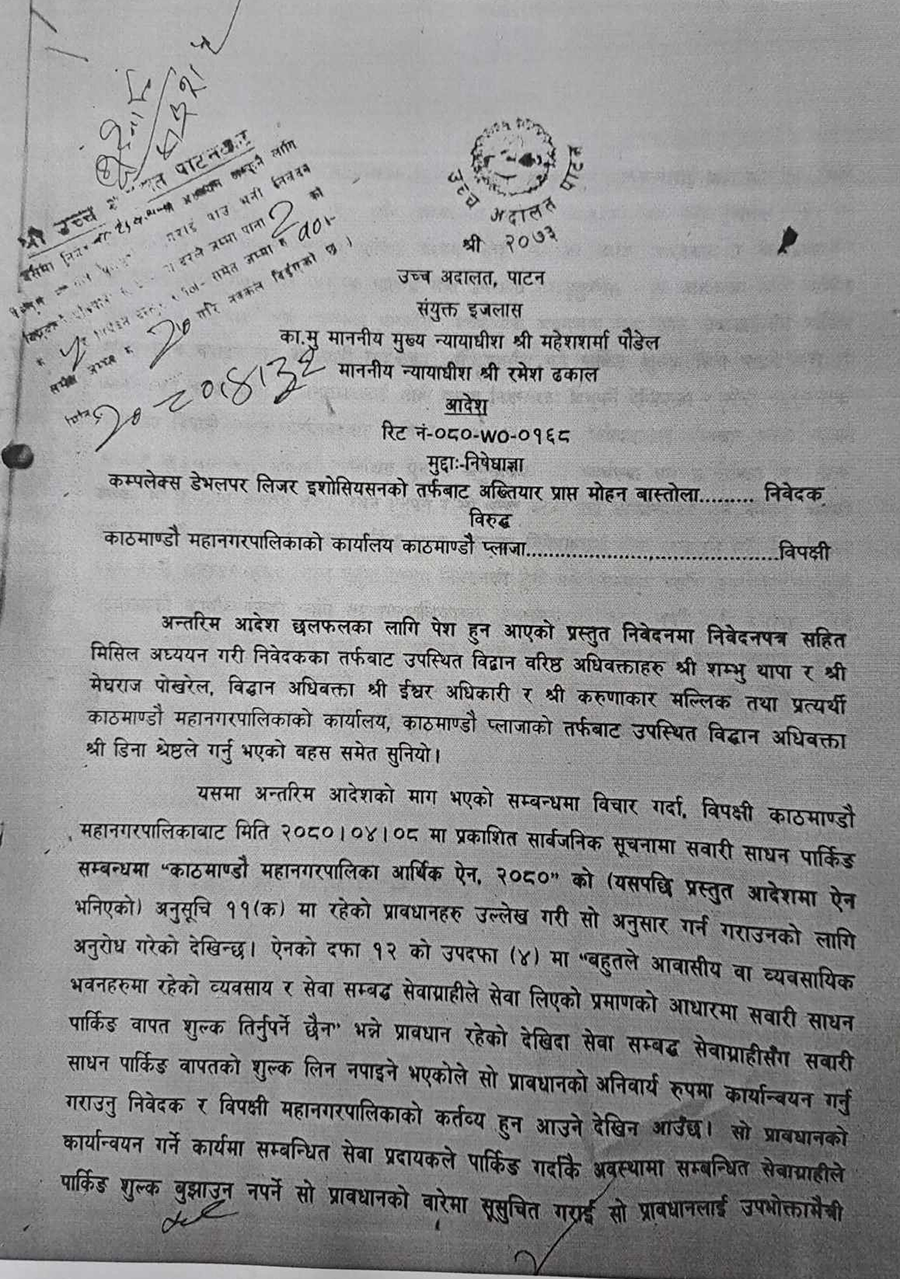 श्री उच्च
उच्च अदालत पाटन
श्री २०७३
उच्च अदालत, पाटन
संयुक्त इजलास
का.मु माननीय मुख्य न्यायाधीश श्री महेशशर्मा पौडेल
माननीय न्यायाधीश श्री रमेश ढकाल
आदेश
रिट नं-०८०-WO-०१६८
मुद्दाः-निषेधाज्ञा
कम्पलेक्स डेभलपर लिजर इशोसियसनको तर्फबाट अख्तियार प्राप्त मोहन बास्तोला......... निवेदक
विरुद्ध
काठमाण्डौ महानगरपालिकाको कार्यालय काठमाण्डौ प्लाजा.......................................विपक्षी
अन्तरिम आदेश छलफलका लागि पेश हुन आएको प्रस्तुत निवेदनमा निवेदनपत्र सहित
मिसिल अध्ययन गरी निवेदकका तर्फबाट उपस्थित विद्वान वरिष्ठ अधिवक्ताहरु श्री शम्भु थापा र श्री
मेघराज पोखरेल, विद्वान अधिवक्ता श्री ईश्वर अधिकारी र श्री करुणाकार मल्लिक तथा प्रत्यर्थी
काठमाण्डौ महानगरपालिकाको कार्यालय, काठमाण्डौ प्लाजाको तर्फबाट उपस्थित विद्वान अधिवक्ता
श्री डिना श्रेष्ठले गर्नु भएको बहस समेत सुनियो।
यसमा अन्तरिम आदेशको माग भएको सम्बन्धमा विचार गर्दा, विपक्षी काठमाण्डौ
महानगरपालिकाबाट मिति २०८०।०४।०८ मा प्रकाशित सार्वजनिक सूचनामा सवारी साधन पार्किङ
सम्बन्धमा "काठमाण्डौ महानगरपालिका आर्थिक ऐन, २०८०" को (यसपछि प्रस्तुत आदेशमा ऐन
भनिएको) अनुसूचि ११(क) मा रहेको प्रावधानहरु उल्लेख गरी सो अनुसार गर्न गराउनको लागि
अनुरोध गरेको देखिन्छ। ऐनको दफा १२ को उपदफा (४) मा "बहुतले आवासीय वा व्यवसायिक
भवनहरुमा रहेको व्यवसाय र सेवा सम्बद्ध सेवाग्राहीले सेवा लिएको प्रमाणको आधारमा सवारी साधन
पार्किङ वापत शुल्क तिर्नुपर्ने छैन" भन्ने प्रावधान रहेको देखिदा सेवा सम्बद्ध सेवाग्राहीसँग सवारी
साधन पार्किङ वापतको शुल्क लिन नपाइने भएकोले सो प्रावधानको अनिवार्य रुपमा कार्यान्वयन गर्नु
गराउनु निवेदक र विपक्षी महानगरपालिकाको कर्तव्य हुन आउने देखिन आउँछ। सो प्रावधानको
कार्यान्वयन गर्ने कार्यमा सम्बन्धित सेवा प्रदायकले पार्किङ गर्दाकै अवस्थामा सम्बन्धित सेवाग्राहीले
पार्किङ शुल्क बुझाउन नपर्ने सो प्रावधानको वारेमा सूसुचित गराई सो प्रावधानलाई उपभोक्तामैत्री